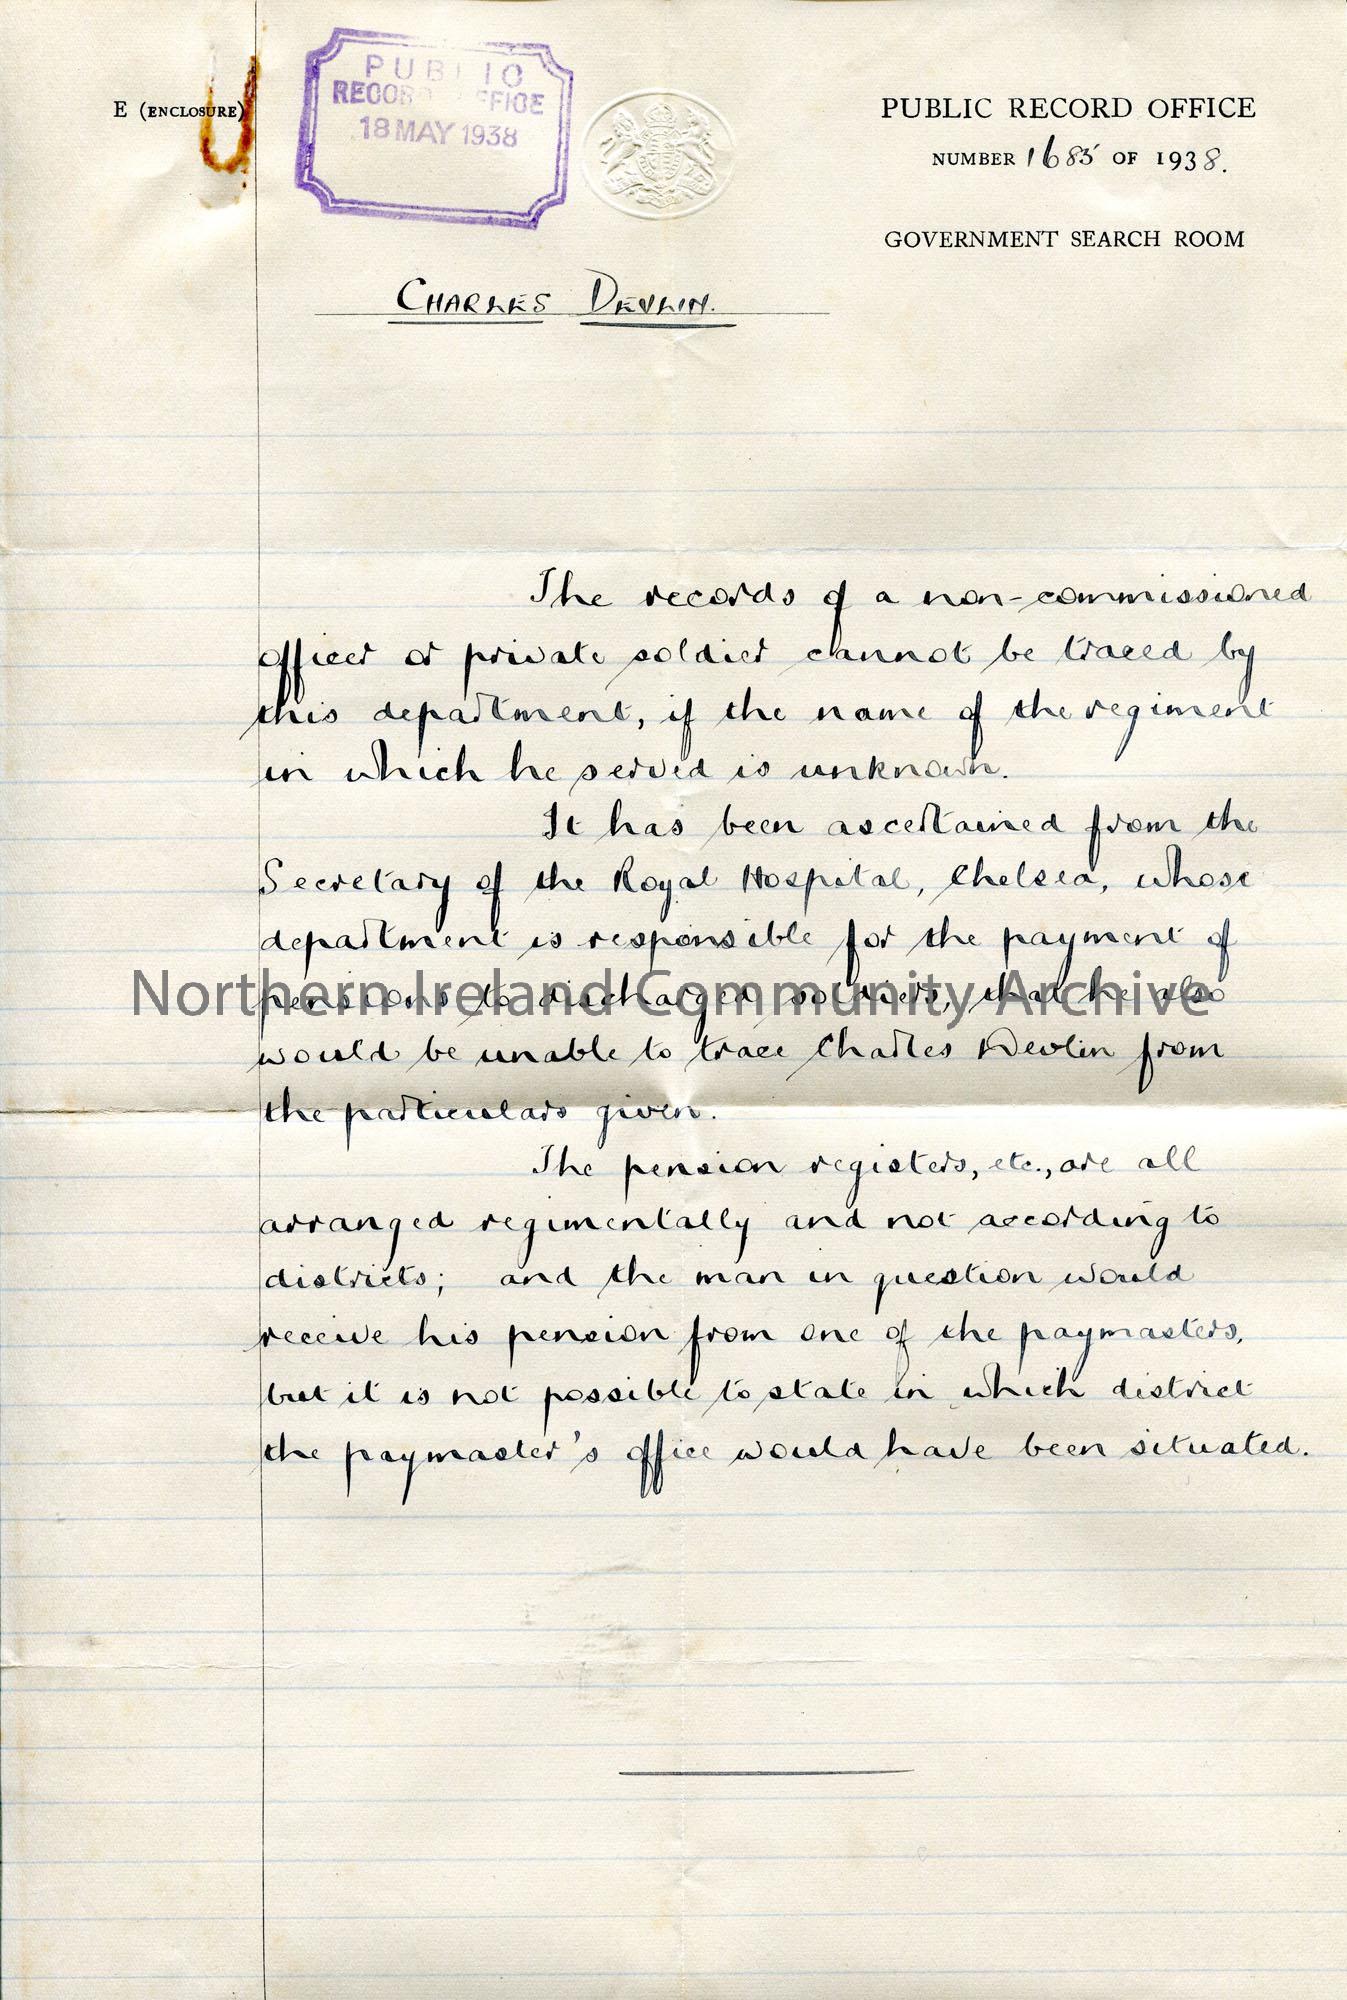 E (ENCLOSURE)
PUBLIC
RECORD OFFICE
18 MAY 1938
PUBLIC RECORD OFFICE
NUMBER 1685 OF 1938.
GOVERNMENT SEARCH ROOM
CHARLES DEVLIN.
The records of a non-commissioned
officer or private soldier cannot be traced by
this department, if the name of the regiment
in which he served is unknown.
It has been ascertained from the
Secretary of the Royal Hospital, Chelsea, whose
department is responsible for the payment of
pensions to discharged soldiers, that he also
Northern Ireland Community Archive
would be unable to trace Charles Devlin from
the particulars given.
The pension registers, etc., are all
arranged regimentally and not according to
districts; and the man in question would
receive his pension from one of the paymasters,
but it is not possible to state in which district
the paymaster's office would have been situated.